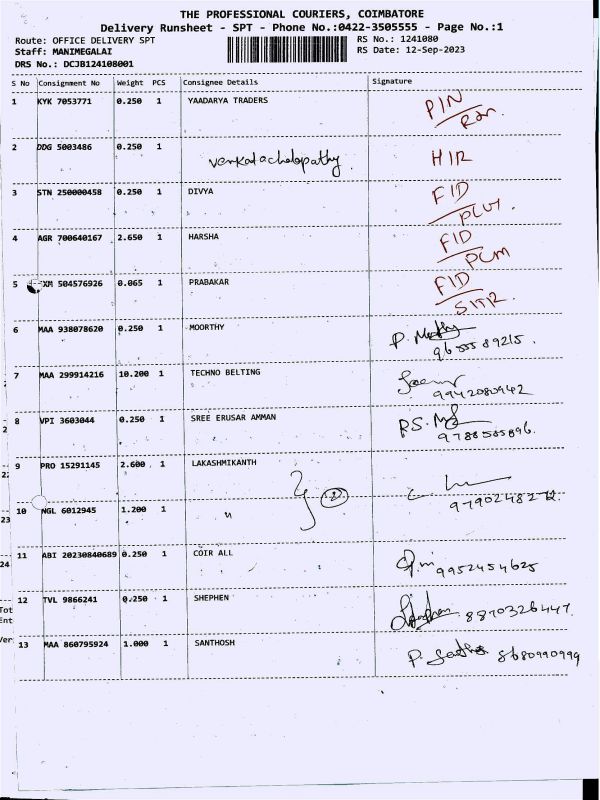 THE PROFESSIONAL COURIERS, COIMBATORE
Delivery Runsheet - SPT - Phone No.:0422-3505555 - Page No.:1
Route: OFFICE DELIVERY SPT RS No.: 1241080
Staff: MANIMEGALAI RS Date: 12-Sep-2023
DRS No.: DCJB124108001
S No Consignment No Weight PCS Consignee Details Signature
1 KYK 7053771 0.250 1 YAADARYA TRADERS PIN
2 DDG 5003486 0.250 1 Venkatachalapathy. HIR
3 STN 250000458 0.250 1 DIVYA FID
4 AGR 700640167 2.650 1 HARSHA FID
PCM
5 XM 504576926 0.065 1 PRABAKAR FID
6 MAA 938078620 0.250 1 MOORTHY P.
9655589215.
7 MAA 299914216 10.200 1 TECHNO BELTING
9942080942
8 VPI 3603044 0.250 1 SREE ERUSAR AMMAN RS.
9788585896.
9 PRO 15291145 2.600 1 LAKASHMIKANTH
2
9790248272
10 NGL 6012945 1.200 1 "
11 ABI 20230840689 0.250 1 COIR ALL
9952454625
12 TVL 9866241 0.250 1 SHEPHEN
8870326447
13 MAA 860795924 1.000 1 SANTHOSH P. 8680990999
2
22
23
24
Tot
Ent
Ver